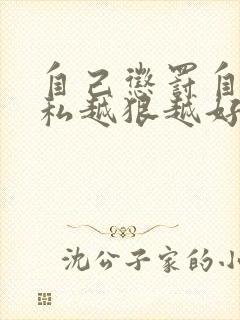 自己惩罚自
私越狠越好
沈公子家的小